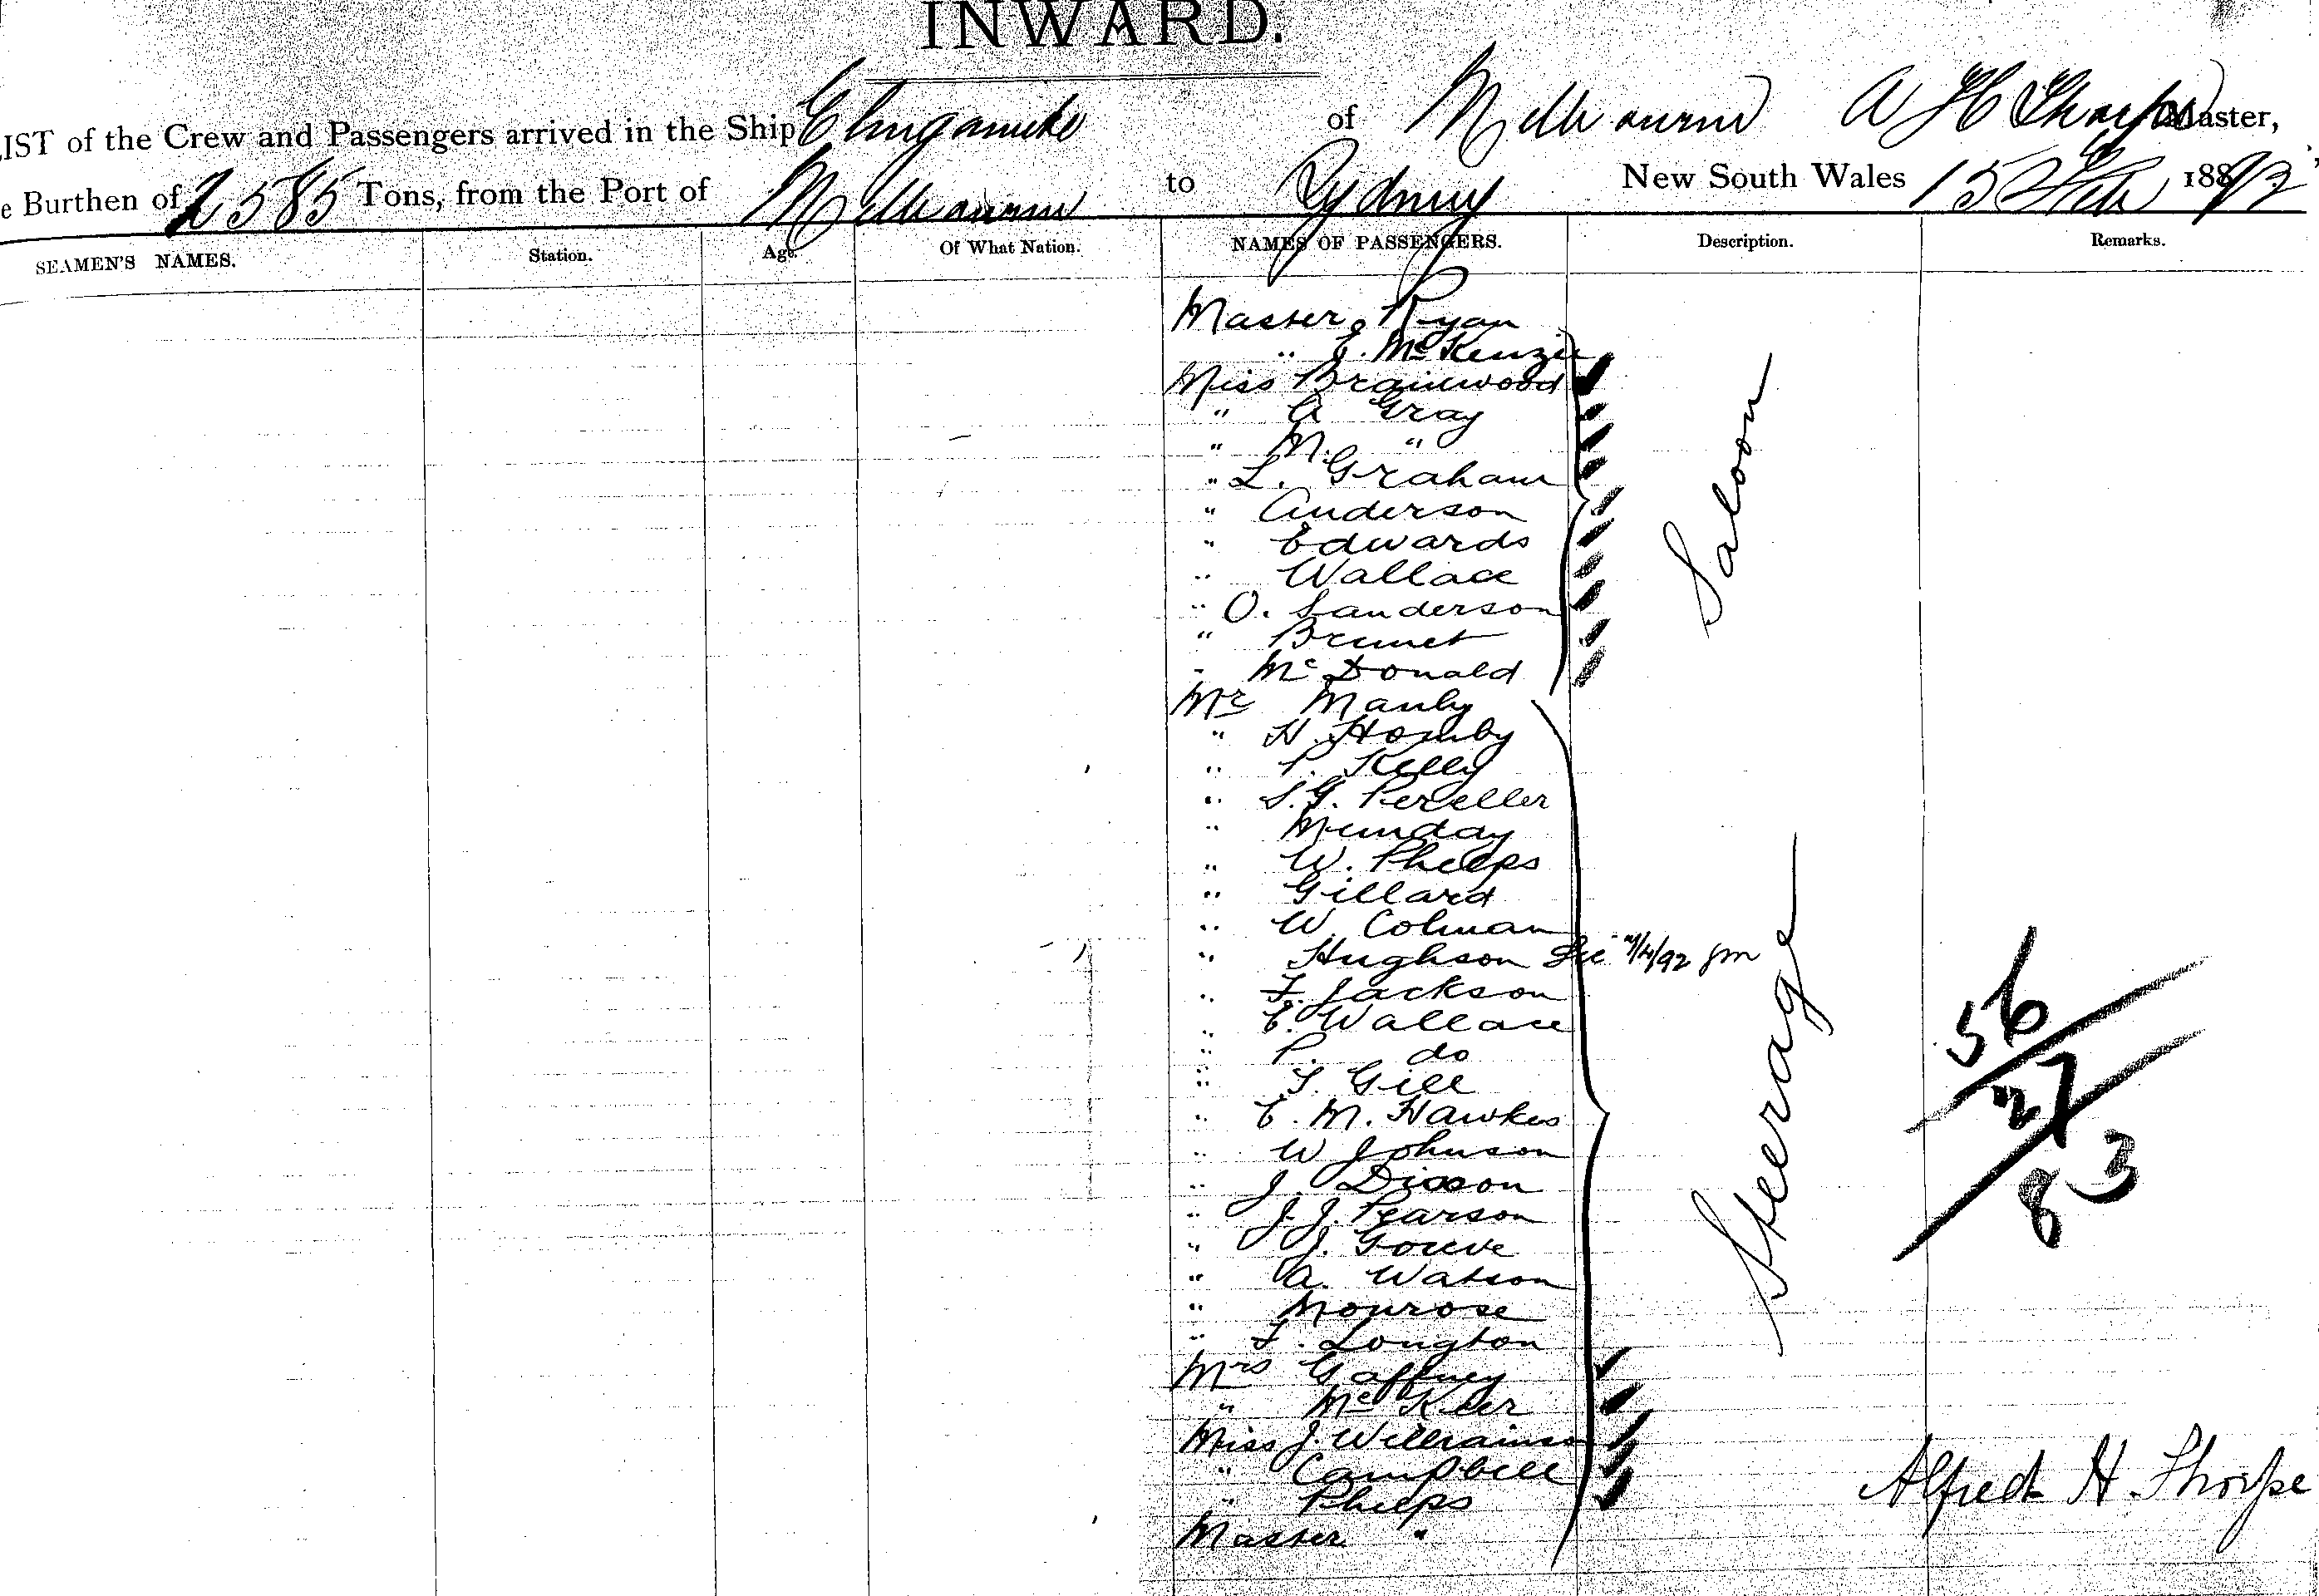 INWARD.
LIST of the Crew and Passengers arrived in the Ship Elingamite of Melbourne A H Thorpe Master,
e Burthen of 2585 Tons, from the Port of Melbourne to Sydney New South Wales 15 Feb 1892
SEAMEN'S NAMES. Station. Age. Of What Nation. NAMES OF PASSENGERS. Description. Remarks.
Master Ryan
" E. McKenzie
Miss Braidwood
" A Gray
" M. "
" L. Graham
" Anderson
" Edwards
" Wallace
" O. Sanderson
" Brunet
" McDonald
Saloon
Mr Manby
" H. Hornby
" P. Kelly
" S.G. Pereller
" Munday
" W. Phelps
" Gillard
" W. Colman
" Hughson 7/4/92
" F. Jackson
" E. Wallace
" P. do
" T. Gill
" E. M. Hawkes
" W Johnson
" J. Dixon
" J. J. Pearson
" J.
" A. Watson
" Monrose
" F. Longton
Mrs Gaffney
" McKeer
Miss J. Williamson
" Campbell
" Phelps
Master "
Steerage
56
27
83
Alfred H. Thorpe